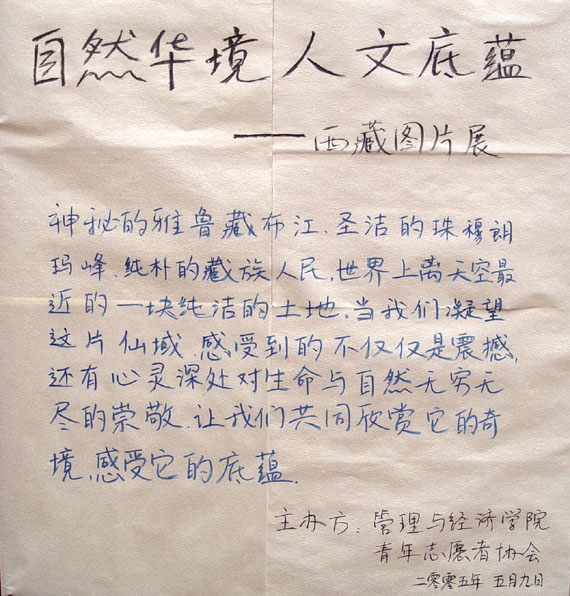 自然华境 人文底蕴
——西藏图片展
神秘的雅鲁藏布江、圣洁的珠穆朗
玛峰、纯朴的藏族人民，世界上离天空最
近的一块纯洁的土地，当我们凝望
这片仙域，感受到的不仅仅是震撼，
还有心灵深处对生命与自然无穷无
尽的崇敬，让我们共同欣赏它的奇
境，感受它的底蕴.
主办方：管理与经济学院
青年志愿者协会
二零零五年 五月九日